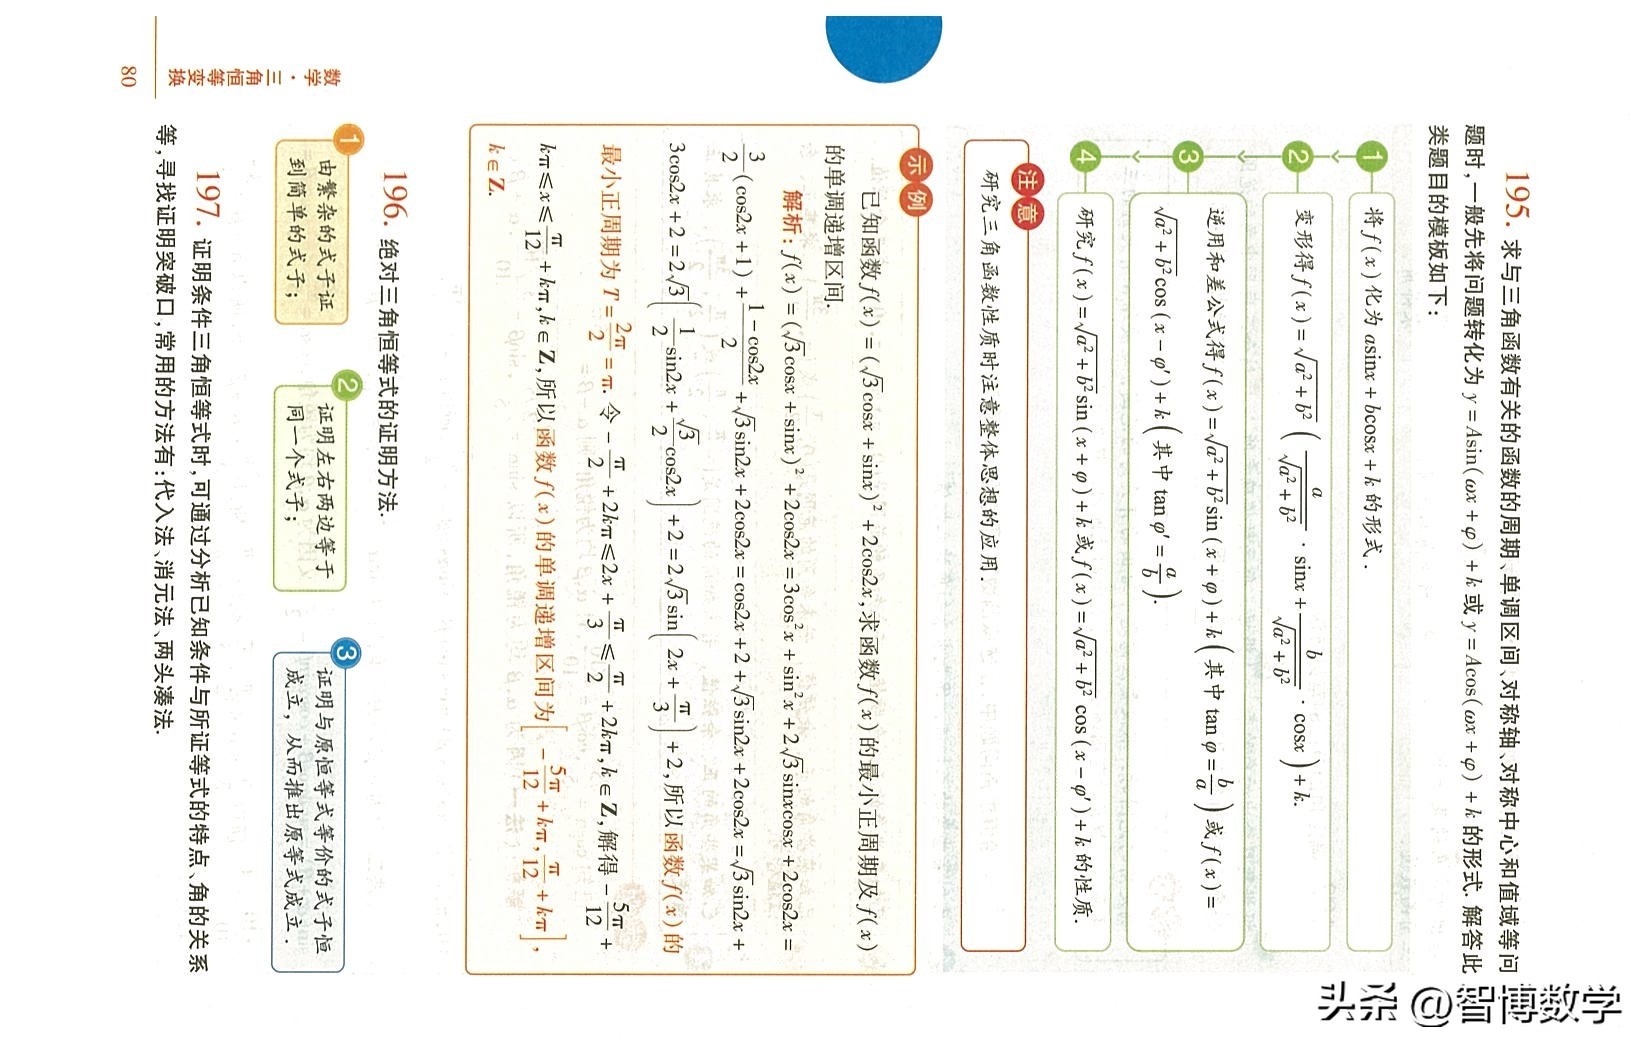 195. 求与三角函数有关的函数的周期、单调区间、对称轴、对称中心和值域等问
题时,一般先将问题转化为 y=Asin(ωx+φ)+k 或 y=Acos(ωx+φ)+k 的形式. 解答此
类题目的模板如下:
1 将 f(x) 化为 asinx+bcosx+k 的形式.
2 变形得 f(x)=√(a²+b²)(a/√(a²+b²)·sinx+b/√(a²+b²)·cosx)+k.
3 逆用和差公式得 f(x)=√(a²+b²)sin(x+φ)+k(其中 tanφ=b/a)或 f(x)=
√(a²+b²)cos(x-φ′)+k(其中 tanφ′=a/b).
4 研究 f(x)=√(a²+b²)sin(x+φ)+k 或 f(x)=√(a²+b²)cos(x-φ′)+k 的性质.
注意
研究三角函数性质时注意整体思想的应用.
示例
已知函数 f(x)=(√3cosx+sinx)²+2cos2x,求函数 f(x) 的最小正周期及 f(x)
的单调递增区间.
解析:f(x)=(√3cosx+sinx)²+2cos2x=3cos²x+sin²x+2√3sinxcosx+2cos2x=
3/2(cos2x+1)+(1-cos2x)/2+√3sin2x+2cos2x=cos2x+2+√3sin2x+2cos2x=√3sin2x+
3cos2x+2=2√3(1/2sin2x+√3/2cos2x)+2=2√3sin(2x+π/3)+2,所以函数 f(x) 的
最小正周期为 T=2π/2=π. 令 -π/2+2kπ≤2x+π/3≤π/2+2kπ,k∈Z,解得 -5π/12+
kπ≤x≤π/12+kπ,k∈Z,所以函数 f(x) 的单调递增区间为[-5π/12+kπ,π/12+kπ],
k∈Z.
196. 绝对三角恒等式的证明方法.
1
由繁杂的式子证
到简单的式子;
2
证明左右两边等于
同一个式子;
3
证明与原恒等式等价的式子恒
成立,从而推出原等式成立.
197. 证明条件三角恒等式时,可通过分析已知条件与所证等式的特点、角的关系
等,寻找证明突破口,常用的方法有:代入法、消元法、两头凑法.
数学·三角恒等变换
80
头条 @智博数学